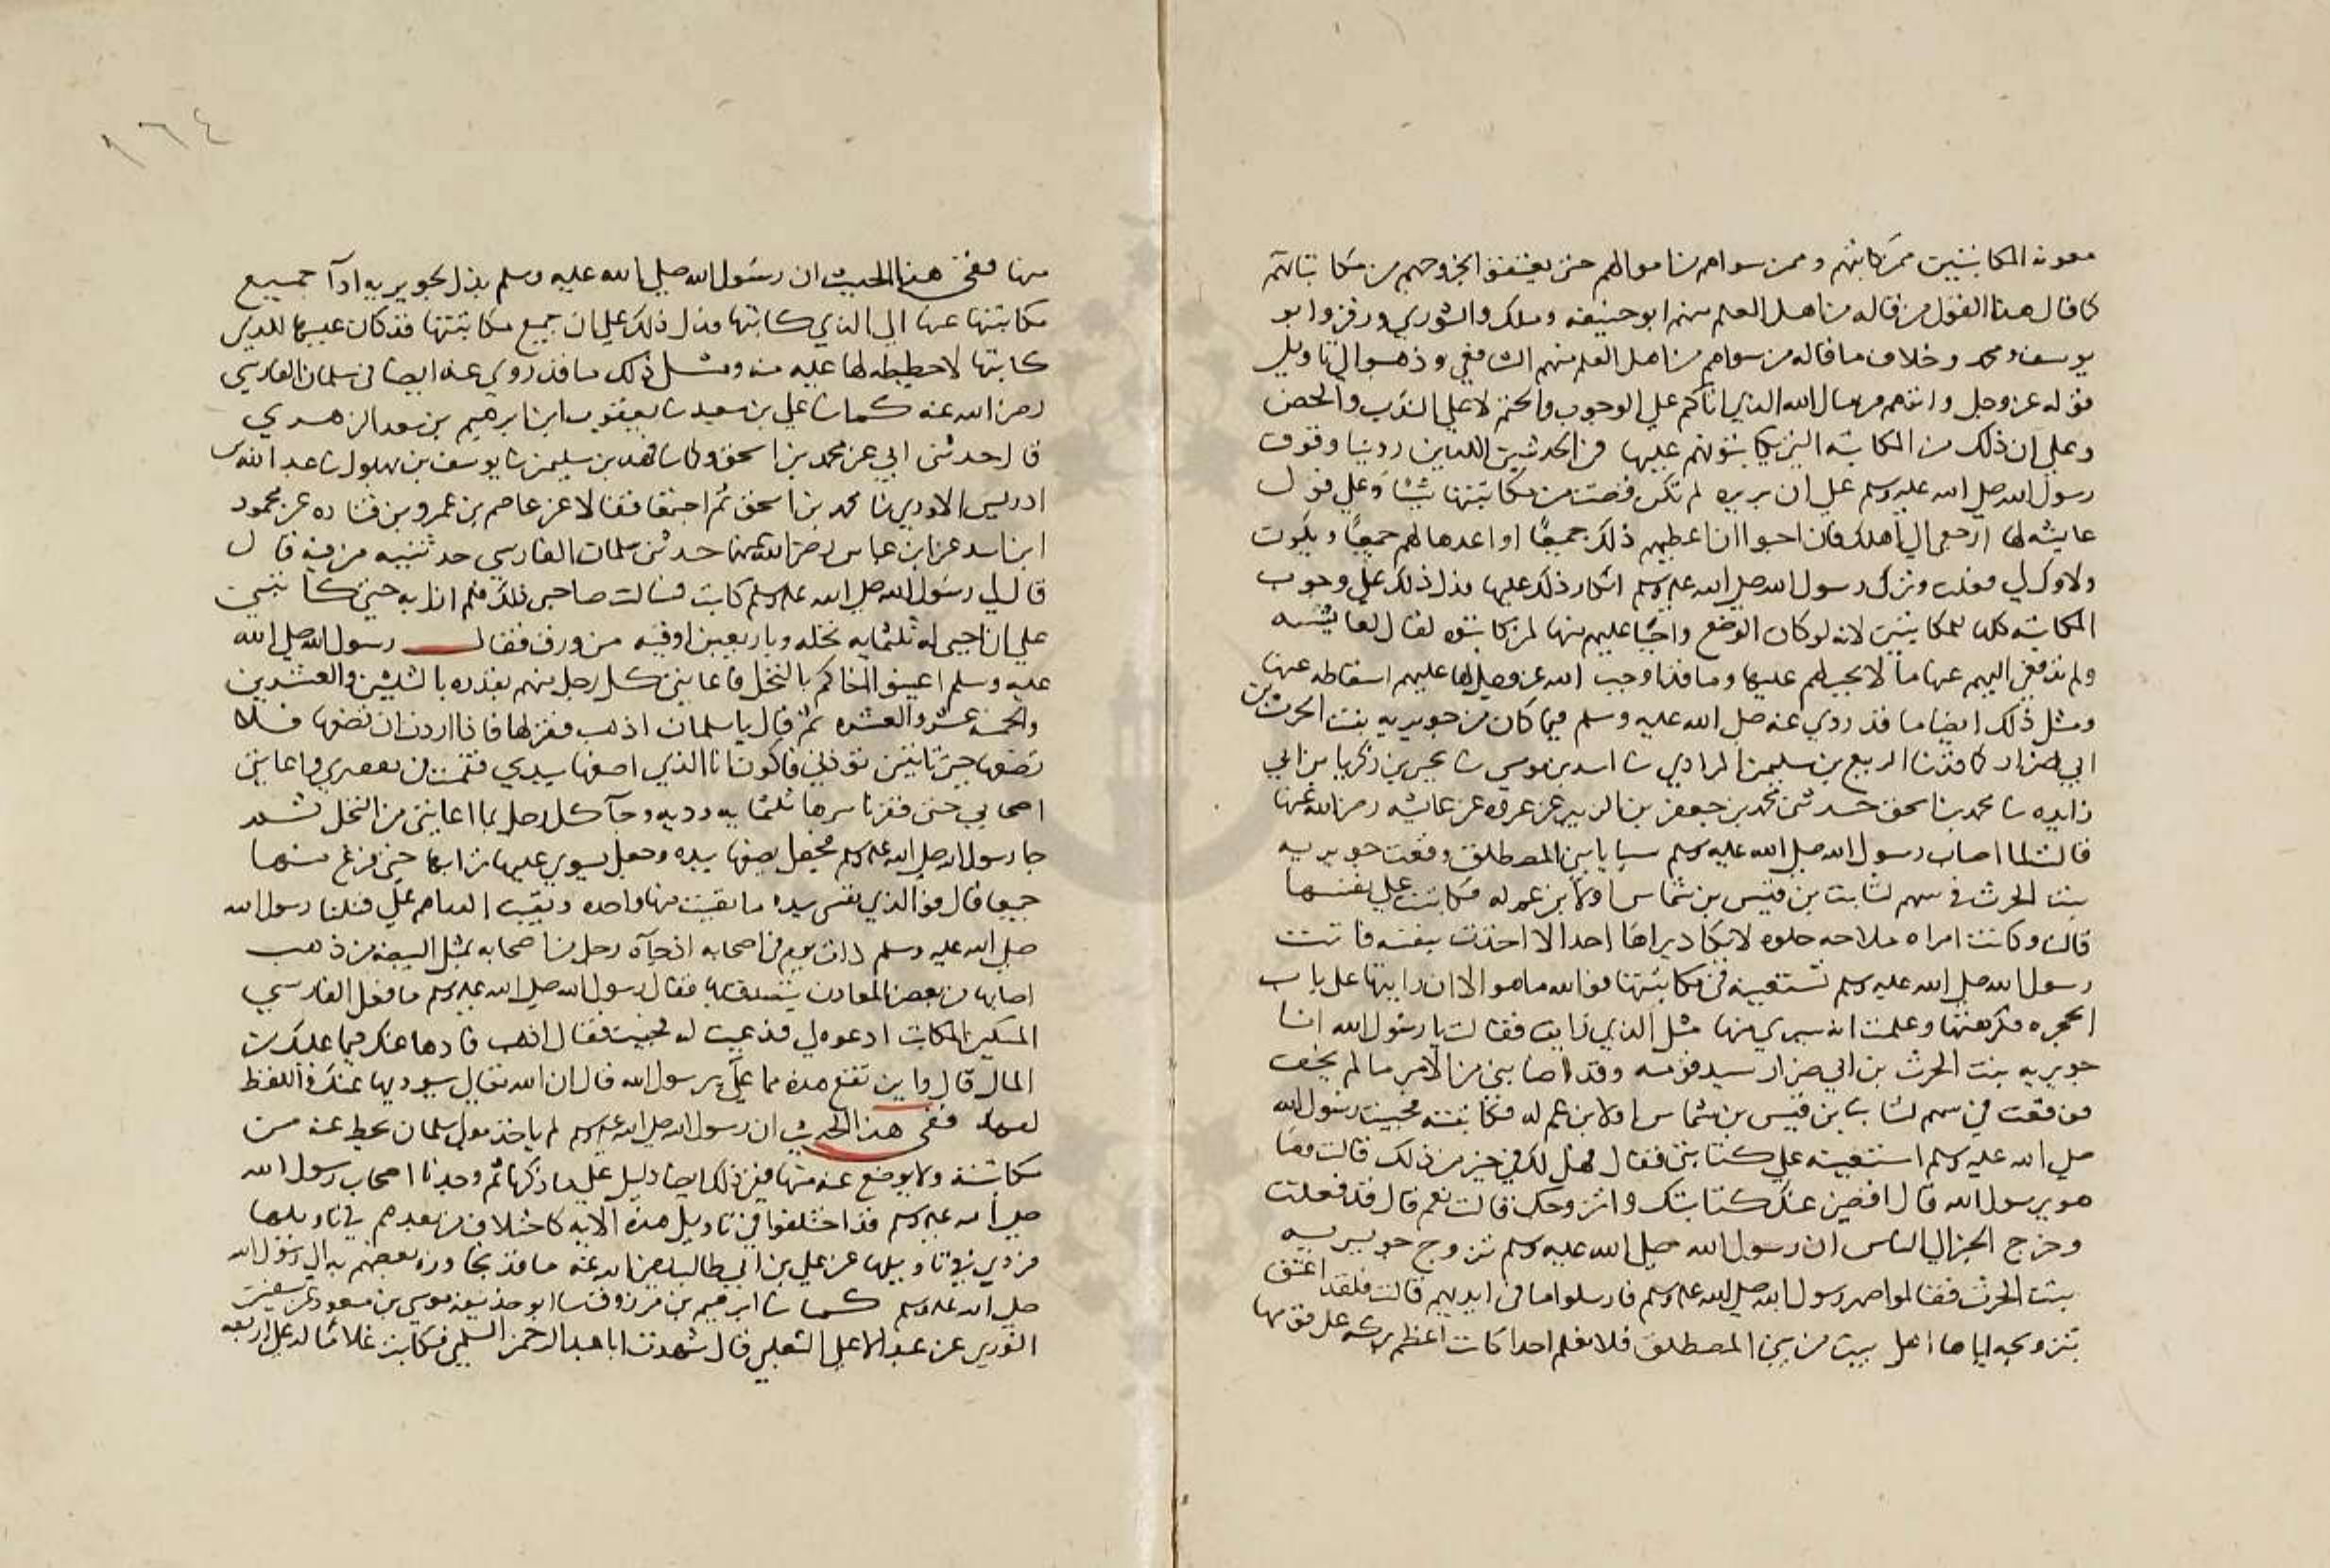 معونة المكاتبين ممن كاتبهم وممن سواهم من اموالهم حتى يعتقوا بخروجهم من مكاتباتهم
كما قال هذا القول من قاله من اهل العلم منهم ابو حنيفه وملك والثوري وزفر وابو
يوسف ومحمد وخلاف ما قاله من سواهم من اهل العلم منهم الشافعي وذهبوا الي تاويل
قوله عز وجل واتوهم من مال الله الذي اتاكم علي الوجوب والحتم لا علي الندب والحض
وعلي ان ذلك من المكاتبه التي يكاتبونهم عليها في الحديثين اللذين روينا وقوف
رسول الله صلي الله عليه وسلم علي ان بريره لم تكن قضت من مكاتبتها شيئا وعلي قول
عايشه لها ارجعي الي اهلك فان احبوا ان اعطيهم ذلك جميعا او اعدها لهم جميعا ويكون
ولاوك لي فعلت وترك رسول الله صلي الله عليه وسلم انكار ذلك عليها فدل ذلك علي وجوب
المكاتبه كلها للمكاتبين لانه لو كان الوضع واجبا عليهم منها لمن كاتبوه لقال لعايشه
ولم تدفعي اليهم عنها ما لا يجب لهم عليها وما قد اوجب الله عز وجل لها عليهم اسقاطه عنها
ومثل ذلك ايضا ما قد روي عنه صلي الله عليه وسلم فيما كان من جويريه بنت الحرث بن
ابي ضرار كما قد ثنا الربيع بن سليمن المرادي ثنا اسد بن موسي ثنا يحيي بن زكريا بن ابي
زايده ثنا محمد بن اسحق حدثني محمد بن جعفر بن الزبير عن عروه عن عائشه رضي الله عنها
قالت لما اصاب رسول الله صلي الله عليه وسلم سبايا بني المصطلق وقعت جويريه
بنت الحرث في سهم لثابت بن قيس بن شماس او لابن عم له فكاتبت علي نفسها
قالت وكانت امراه ملاحه حلوه لا يكاد يراها احد الا اخذت بنفسه فاتت
رسول الله صلي الله عليه وسلم تستعينه في مكاتبتها فوالله ما هو الا ان رايتها علي باب
الحجره فكرهتها وعلمت انه سيري منها مثل الذي رايت فقالت يا رسول الله انا
جويريه بنت الحرث بن ابي ضرار سيد قومه وقد اصابني من الامر ما لم يخف
فوقعت في سهم لثابت بن قيس بن شماس او لابن عم له فكاتبته فجيت رسول الله
صلي الله عليه وسلم استعينه علي كتابتي فقال فهل لك في خير من ذلك قالت وما
هو يرسول الله قال اقضي عنك كتابتك واتزوجك قالت نعم قال قد فعلت
وخرج الخبر الي الناس ان رسول الله صلي الله عليه وسلم تزوج جويريه
بنت الحرث فقالوا صهر رسول الله صلي الله عليه وسلم فارسلوا ما في ايديهم قالت فلقد اعتق
بتزويجه اياها اهل بيت من بني المصطلق فلا نعلم احدا كانت اعظم بركه علي قومها
١٦٤
منها ففي هذا الحديث ان رسول الله صلي الله عليه وسلم بذل لجويريه ادآ جميع
مكاتبتها عنها الي الذي كاتبها فدل ذلك علي ان جميع مكاتبتها قد كان عليها للذي
كاتبها لا حطيطه لها عليه منه ومثل ذلك ما قد روي عنه ايضا في سلمان الفارسي
رضي الله عنه كما ثنا علي بن سعيد ثنا يعقوب ابن ابرهيم بن سعد الزهري
قال حدثني ابي عن محمد بن اسحق وكما ثنا فهد بن سليمن ثنا يوسف بن بهلول ثنا عبد الله بن
ادريس الاودي ثنا محمد بن اسحق ثم اجتمعا فقالا عن عاصم بن عمرو بن قتاده عن محمود
ابن لبيد عن ابن عباس رضي الله عنهما حدثني سلمان الفارسي حديثه من فيه قال
قال لي رسول الله صلي الله عليه وسلم كاتب فسالت صاحبي ذلك فلم ازل به حتي كاتبني
علي ان احيي له ثلثمايه نخله وباربعين اوقيه من ورق فقال رسول الله صلي الله
عليه وسلم اعينوا اخاكم بالنخل فاعانني كل رجل منهم بقدره بالثلثين والعشرين
والخمسه عشر والعشره ثم قال يا سلمان اذهب ففقر لها فاذا اردت ان تضعها فلا
تضعها حتي تاتيني توذني فاكون انا الذي اضعها بيدي فقمت في تفقيري واعانني
اصحابي حتي فقرنا شربها ثلثمايه وديه وجآ كل رجل بما اعانني من النخل ثم
جا رسول الله صلي الله عليه وسلم فجعل يضعها بيده وجعل يسوي عليها ترابها حتي فرغ منها
جميعا قال فوالذي نفسي بيده ما بقيت منها واحده وبقيت الدراهم علي فبينا رسول الله
صلي الله عليه وسلم ذات يوم في اصحابه اذ جآه رجل من اصحابه بمثل البيضه من ذهب
اصابها من بعض المعادن يتصدق بها فقال رسول الله صلي الله عليه وسلم ما فعل الفارسي
المسكين المكاتب ادعوه لي فدعيت له فجيت فقال اذهب فادها عنك فيما عليك من
المال قال واين تقع هذه مما علي يرسول الله قال ان الله تعالي سيوديها عنك واللفظ
لفهد ففي هذا الحديث ان رسول الله صلي الله عليه وسلم لم ياخذ مولي سلمان بحط عنه من
مكاتبته ولا بوضع عنه منها ففي ذلك ايضا دليل علي ما ذكرنا ثم وجدنا اصحاب رسول الله
صلي الله عليه وسلم قد اختلفوا في تاويل هذه الايه كاختلاف من بعدهم في تاويلها
فروي في تاويلها عن علي بن ابي طالب رضي الله عنه ما قد تجاوز به بعضهم به الي رسول الله
صلي الله عليه وسلم كما ثنا ابرهيم بن مرزوق ثنا ابو حذيفه موسي بن مسعود عن سفين
الثوري عن عبد الاعلي الثعلبي قال شهدت ابا عبد الرحمن السلمي فكاتب غلاما له علي اربعه